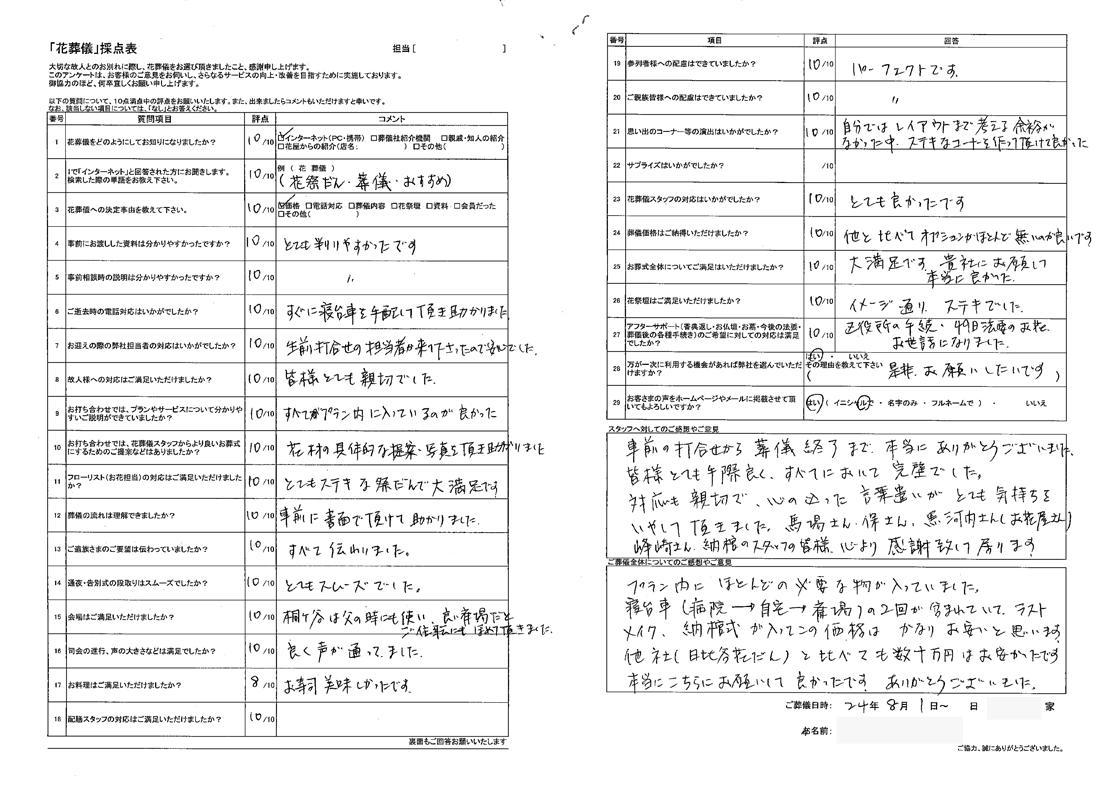 「花葬儀」採点表
担当 [ ]
大切な故人とのお別れに際し、花葬儀をお選び頂きましたこと、感謝申し上げます。
このアンケートは、お客様のご意見をお伺いし、さらなるサービスの向上・改善を目指すために実施しております。
御協力のほど、何卒宜しくお願い申し上げます。
以下の質問について、10点満点中の評点をお願いします。また、出来ましたらコメントもいただけますと幸いです。
なお、該当しない項目については、「なし」とお答えください。
番号 質問項目 評点 コメント
1 花葬儀をどのようにしてお知りになりましたか? 10/10 ☑インターネット(PC・携帯) □葬儀社紹介機関 □親戚・知人の紹介
□花屋からの紹介(店名: ) □その他( )
2 1で「インターネット」と回答された方にお聞きします。
検索した際の単語をお教え下さい。 10/10 例 ( 花 葬儀 )
(花祭だん・葬儀・おすすめ)
3 花葬儀への決定事由を教えて下さい。 10/10 ☑価格 □電話対応 □葬儀内容 □花祭壇 □資料 □会員だった
□その他( )
4 事前にお渡しした資料は分かりやすかったですか? 10/10 とても判りやすかったです
5 事前相談時の説明は分かりやすかったですか? 10/10 〃
6 ご逝去時の電話対応はいかがでしたか? 10/10 すぐに寝台車を手配して頂き助かりました
7 お迎えの際の弊社担当者の対応はいかがでしたか? 10/10 生前打合せの担当者が来て下さったので安心でした。
8 故人様への対応はご満足いただけましたか? 10/10 皆様とても親切でした。
9 お打ち合わせでは、プランやサービスについて分かりや
すいご説明ができていましたか? 10/10 すべてがプラン内に入っているのが良かった
10 お打ち合わせでは、花葬儀スタッフからより良いお葬式
にするためのご提案などはありましたか? 10/10 花材の具体的な提案・写真を頂き助かりました
11 フローリスト(お花担当)の対応はご満足いただけました
か? 10/10 とてもステキな祭だんで大満足です
12 葬儀の流れは理解できましたか? 10/10 事前に書面で頂けて助かりました。
13 ご遺族さまのご要望は伝わっていましたか? 10/10 すべて伝わりました。
14 通夜・告別式の段取りはスムーズでしたか? 10/10 とてもスムーズでした。
15 会場はご満足いただけましたか? 10/10 桐ヶ谷は父の時にも使い、良い斎場だと
ご住職にもほめて頂きました。
16 司会の進行、声の大きさなどは満足でしたか? 10/10 良く声が通ってました。
17 お料理はご満足いただけましたか? 8/10 お寿司美味しかったです。
18 配膳スタッフの対応はご満足いただけましたか? 10/10
裏面もご回答お願いいたします
番号 項目 評点 回答
19 参列者様への配慮はできていましたか? 10/10 パーフェクトです。
20 ご親族皆様への配慮はできていましたか? 10/10 〃
21 思い出のコーナー等の演出はいかがでしたか? 10/10 自分ではレイアウトまで考える余裕が
なかった中、ステキなコーナーを作って頂けて良かった
22 サプライズはいかがでしたか? /10
23 花葬儀スタッフの対応はいかがでしたか? 10/10 とても良かったです
24 葬儀価格はご納得いただけましたか? 10/10 他と比べてオプションがほとんど無いのが良いです
25 お葬式全体についてご満足はいただけましたか? 10/10 大満足です。貴社にお願いして
本当に良かった。
26 花祭壇はご満足いただけましたか? 10/10 イメージ通り、ステキでした。
27 アフターサポート(香典返し・お仏壇・お墓・今後の法要・
葬儀後の各種手続き)のご希望に対しての対応は満足
でしたか? 10/10 区役所の手続・49日法要のお花
お世話になりました。
28 万が一次に利用する機会があれば弊社を選んでいただ
けますか? はい ・ いいえ
その理由を教えて下さい
( 是非、お願いしたいです )
29 お客さまの声をホームページやメールに掲載させて頂
いてもよろしいですか? はい (イニシャルで ・ 名字のみ ・ フルネームで ) ・ いいえ
スタッフへ対してのご感想やご意見
事前の打合せから葬儀終了まで、本当にありがとうございました。
皆様とても手際良く、すべてにおいて完璧でした。
対応も親切で、心の込った言葉遣いがとても気持ちを
いやして頂きました。馬場さん・保さん、黒河内さん(お花屋さん)
峰崎さん、納棺のスタッフの皆様、心より感謝致して居ります
ご葬儀全体についてのご感想やご意見
プラン内にほとんどの必要な物が入っていました。
寝台車(病院→自宅→斎場)の2回が含まれていて、ラスト
メイク、納棺式が入ってこの価格はかなりお安いと思います。
他社(日比谷花だん)と比べても数十万円はお安かったです
本当にこちらにお願いして良かったです ありがとうございました。
ご葬儀日時: 24年 8月 1日~ 日 家
お名前:
ご協力、誠にありがとうございました。